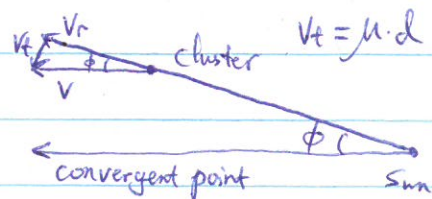 Vr
Vt
cluster
Vt = μ·d
ϕ
V
ϕ
convergent point
Sun